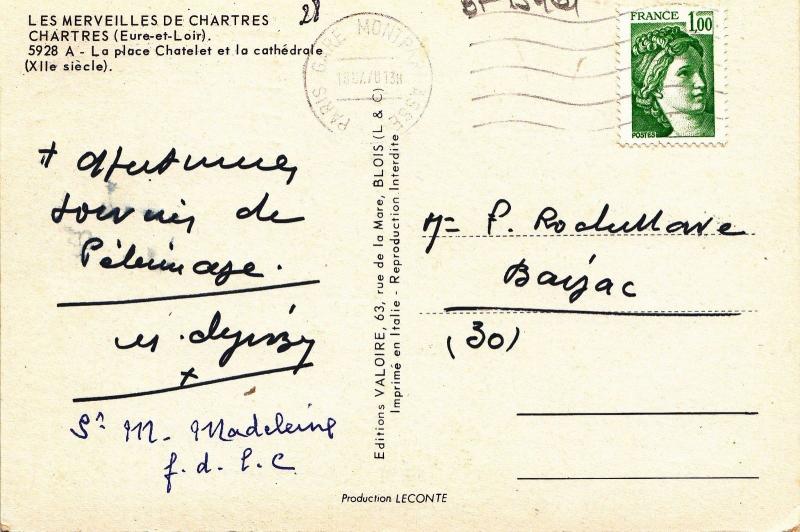 LES MERVEILLES DE CHARTRES
CHARTRES (Eure-et-Loir).
5928 A - La place Chatelet et la cathédrale
(XIIe siècle).
28
PARIS GARE MONTPARNASSE
FRANCE
1,00
POSTES
+ affectueux
souvenir de
Pèlerinage.
M.
+
Sr M. Madeleine
f. d. l. C
Editions VALOIRE, 63, rue de la Mare, BLOIS (L & C)
Imprimé en Italie - Reproduction Interdite
P.
Barjac
(30)
Production LECONTE